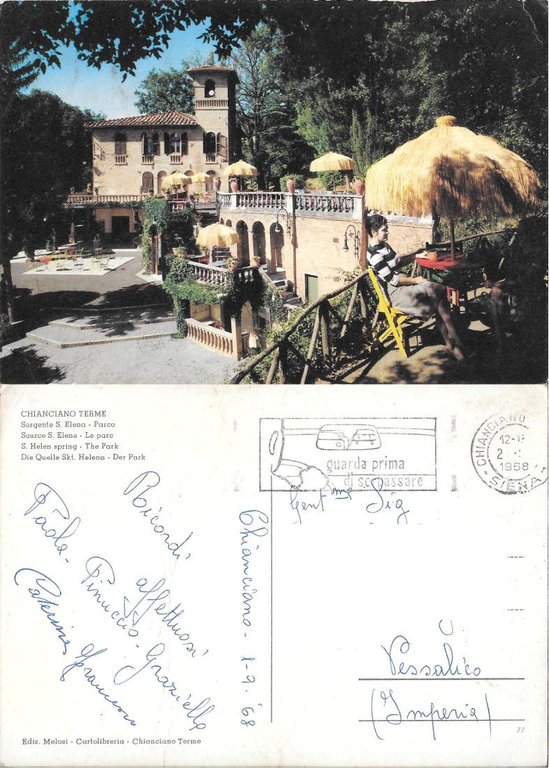 CHIANCIANO TERME
Sorgente S. Elena - Parco
Source S. Elene - Le parc
S. Helen spring - The Park
Die Quelle Skt. Helena - Der Park
guarda prima
di sorpassare
CHIANCIANO
12-
2
1968
SIENA
Ricordi affettuosi
Paola - Pinuccio - Graziella
Caterina
Chianciano - 1-9-'68
Gent.ma Sig
Vessalico
(Imperia)
77
Ediz. Melosi - Cartolibreria - Chianciano Terme